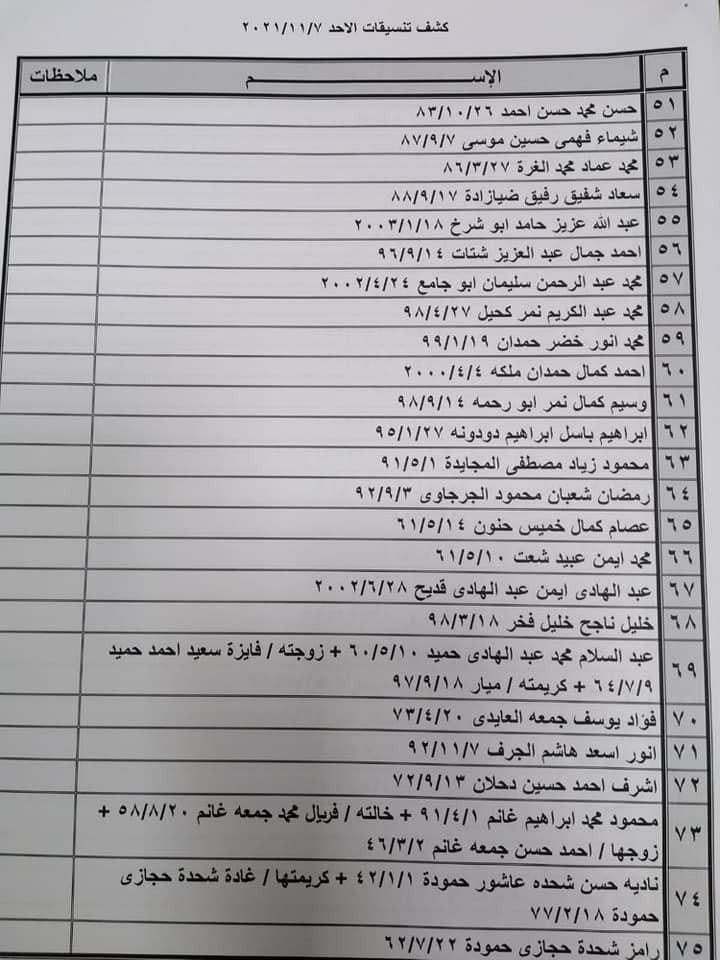 كشف تنسيقات الاحد ٢٠٢١/١١/٧
م الإســـــــم ملاحظات
٥١ حسن محمد حسن احمد ٨٣/١٠/٢٦
٥٢ شيماء فهمى حسين موسى ٨٧/٩/٧
٥٣ محمد عماد محمد الغرة ٨٦/٣/٢٧
٥٤ سعاد شفيق رفيق ضيازادة ٨٨/٩/١٧
٥٥ عبد الله عزيز حامد ابو شرخ ٢٠٠٣/١/١٨
٥٦ احمد جمال عبد العزيز شتات ٩٦/٩/١٤
٥٧ محمد عبد الرحمن سليمان ابو جامع ٢٠٠٢/٤/٢٤
٥٨ محمد عبد الكريم نمر كحيل ٩٨/٤/٢٧
٥٩ محمد انور خضر حمدان ٩٩/١/١٩
٦٠ احمد كمال حمدان ملكه ٢٠٠٠/٤/٤
٦١ وسيم كمال نمر ابو رحمه ٩٨/٩/١٤
٦٢ ابراهيم باسل ابراهيم دودونه ٩٥/١/٢٧
٦٣ محمود زياد مصطفى المجايدة ٩١/٥/١
٦٤ رمضان شعبان محمود الجرجاوى ٩٢/٩/٣
٦٥ عصام كمال خميس حنون ٦١/٥/١٤
٦٦ محمد ايمن عبيد شعت ٦١/٥/١٠
٦٧ عبد الهادى ايمن عبد الهادى قديح ٢٠٠٢/٦/٢٨
٦٨ خليل ناجح خليل فخر ٩٨/٣/١٨
٦٩ عبد السلام محمد عبد الهادى حميد ٦٠/٥/١٠ + زوجته / فايزة سعيد احمد حميد
٦٤/٧/٩ + كريمته / ميار ٩٧/٩/١٨
٧٠ فؤاد يوسف جمعه العايدى ٧٣/٤/٢٠
٧١ انور اسعد هاشم الجرف ٩٢/١١/٧
٧٢ اشرف احمد حسين دحلان ٧٢/٩/١٣
٧٣ محمود محمد ابراهيم غانم ٩١/٤/١ + خالته / فريال محمد جمعه غانم ٥٨/٨/٢٠ +
زوجها / احمد حسن جمعه غانم ٤٦/٣/٢
٧٤ ناديه حسن شحده عاشور حمودة ٤٢/١/١ + كريمتها / غادة شحدة حجازى
حمودة ٧٧/٢/١٨
٧٥ رامز شحدة حجازى حمودة ٦٢/٧/٢٢